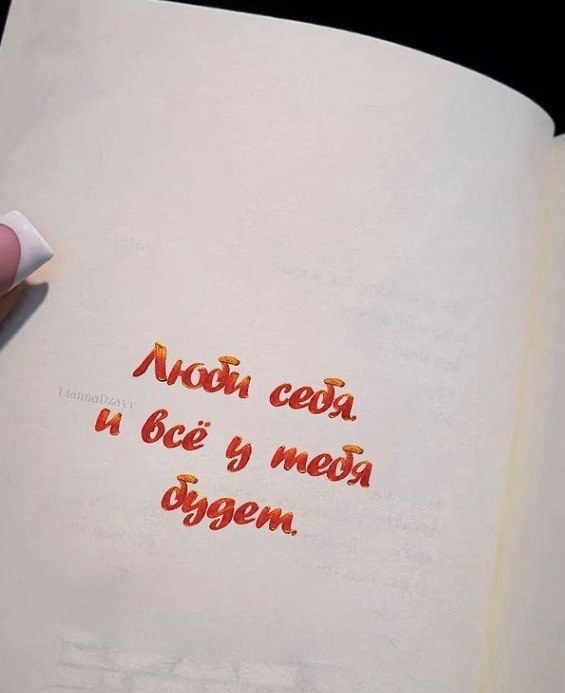 Люби себя.
и всё у тебя
будет.